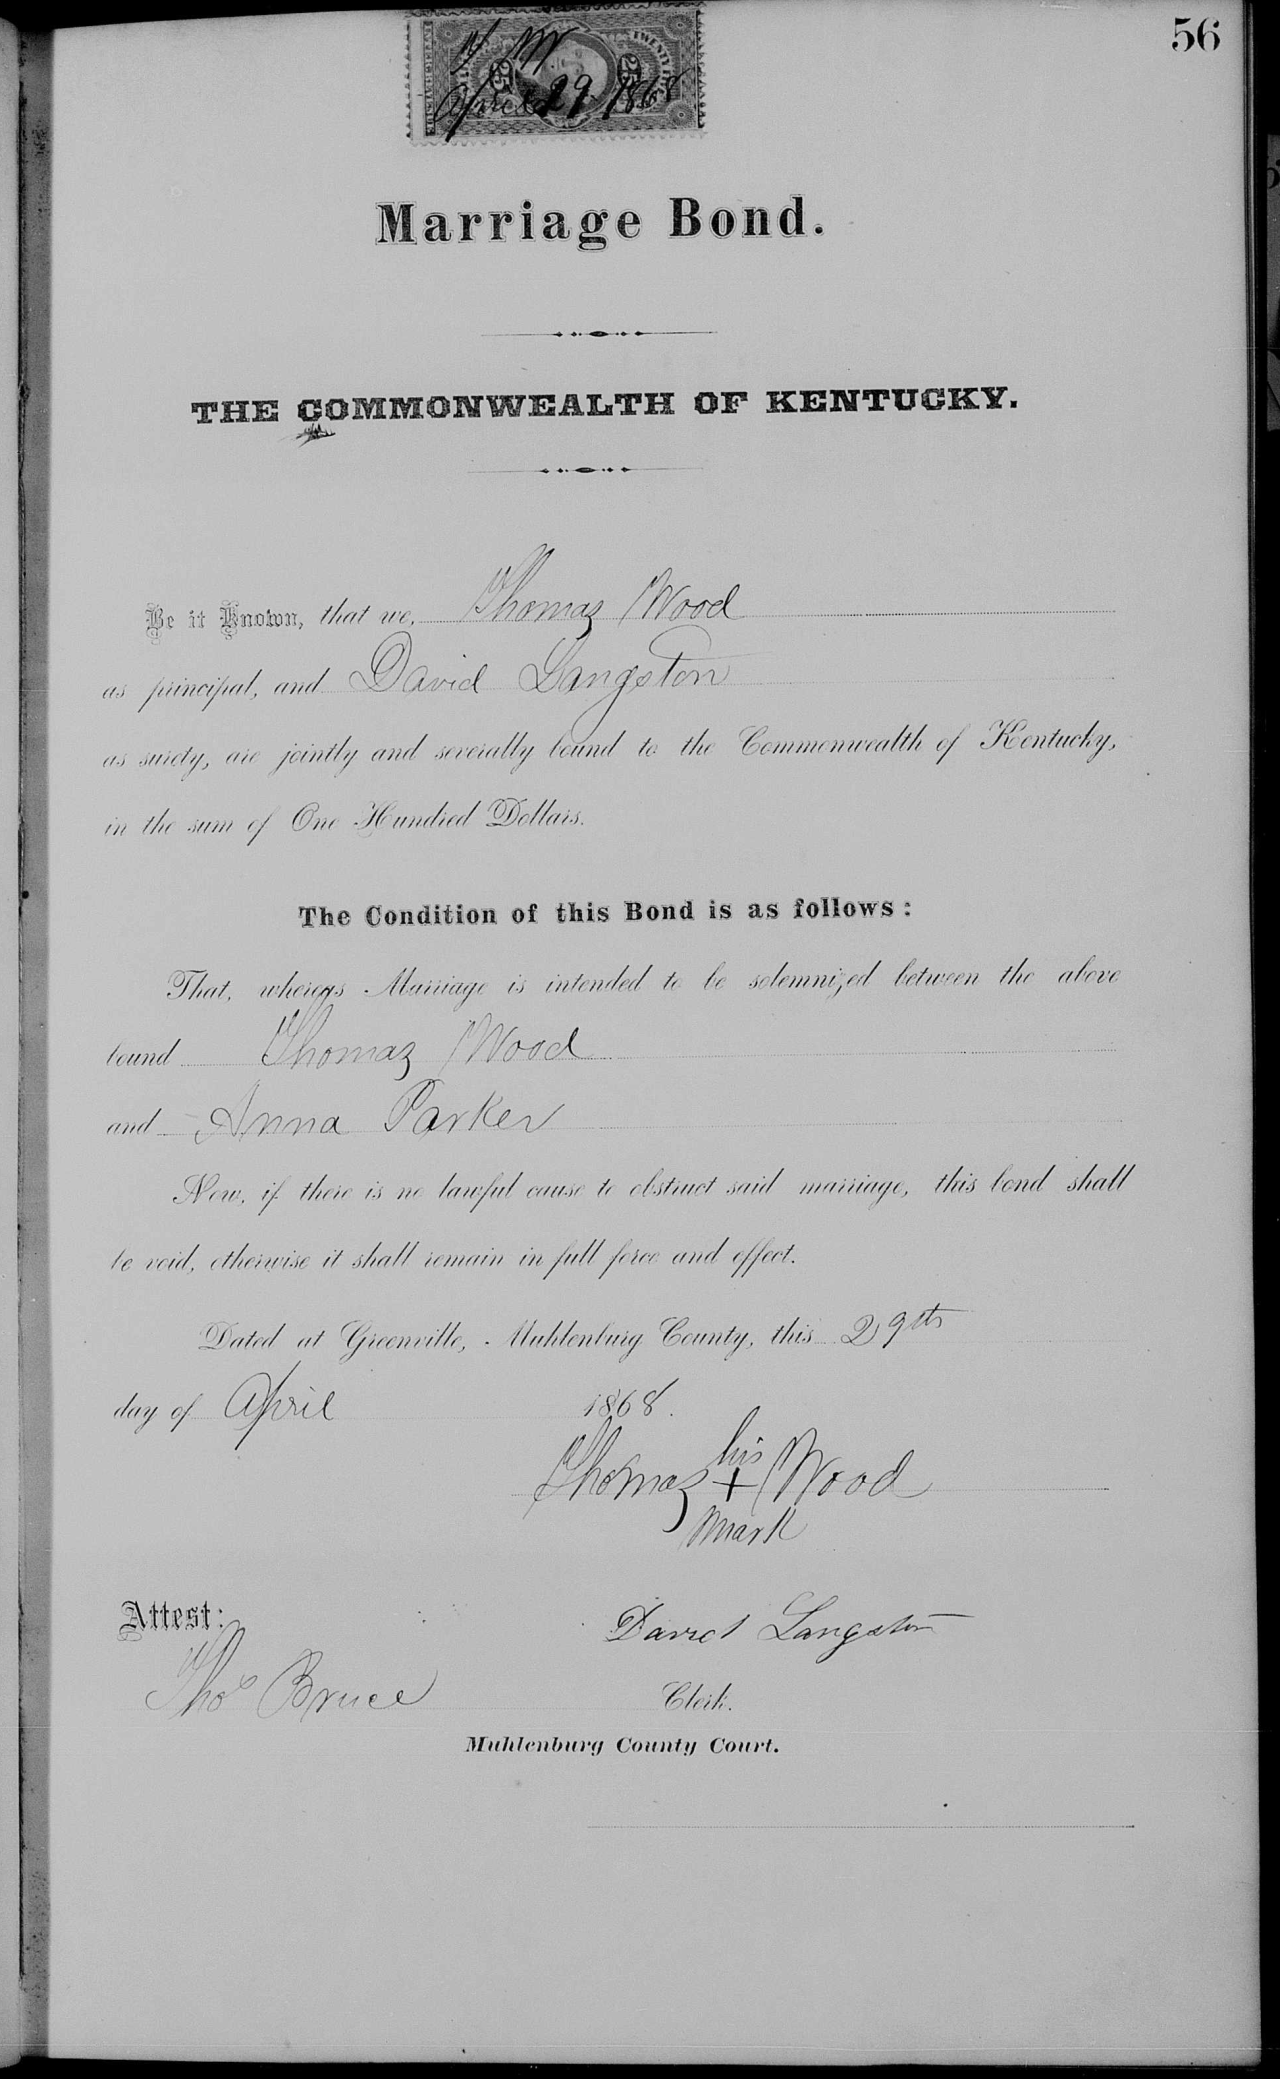 56
25 25
April 29 1868
Marriage Bond.
THE COMMONWEALTH OF KENTUCKY.
Be it Known, that we, Thomas Wood
as principal, and David Langston
as surety, are jointly and severally bound to the Commonwealth of Kentucky,
in the sum of One Hundred Dollars.
The Condition of this Bond is as follows:
That, whereas Marriage is intended to be solemnized between the above
bound Thomas Wood
and Anna Parker
Now, if there is no lawful cause to obstruct said marriage, this bond shall
be void, otherwise it shall remain in full force and effect.
Dated at Greenville, Muhlenburg County, this 29th
day of April 1868.
his
Thomas + Wood
mark
Attest:
David Langston
Thos Bruce Clerk.
Muhlenburg County Court.